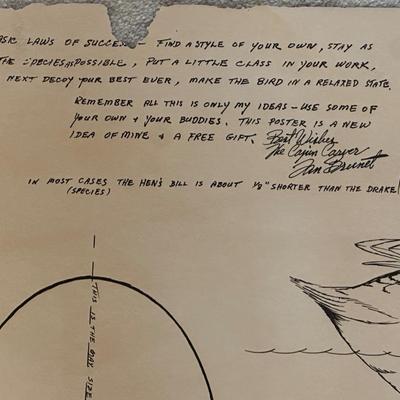 ASIC LAWS OF SUCCESS - FIND A STYLE OF YOUR OWN, STAY AS
THE SPECIES AS POSSIBLE, PUT A LITTLE CLASS IN YOUR WORK,
NEXT DECOY YOUR BEST EVER, MAKE THE BIRD IN A RELAXED STATE.
REMEMBER ALL THIS IS ONLY MY IDEAS - USE SOME OF
YOUR OWN & YOUR BUDDIES. THIS POSTER IS A NEW
IDEA OF MINE & A FREE GIFT. Best Wishes
The Cajun Carver
Brunet
IN MOST CASES THE HEN'S BILL IS ABOUT 1/8" SHORTER THAN THE DRAKE
(SPECIES)
THIS IS THE SIZE